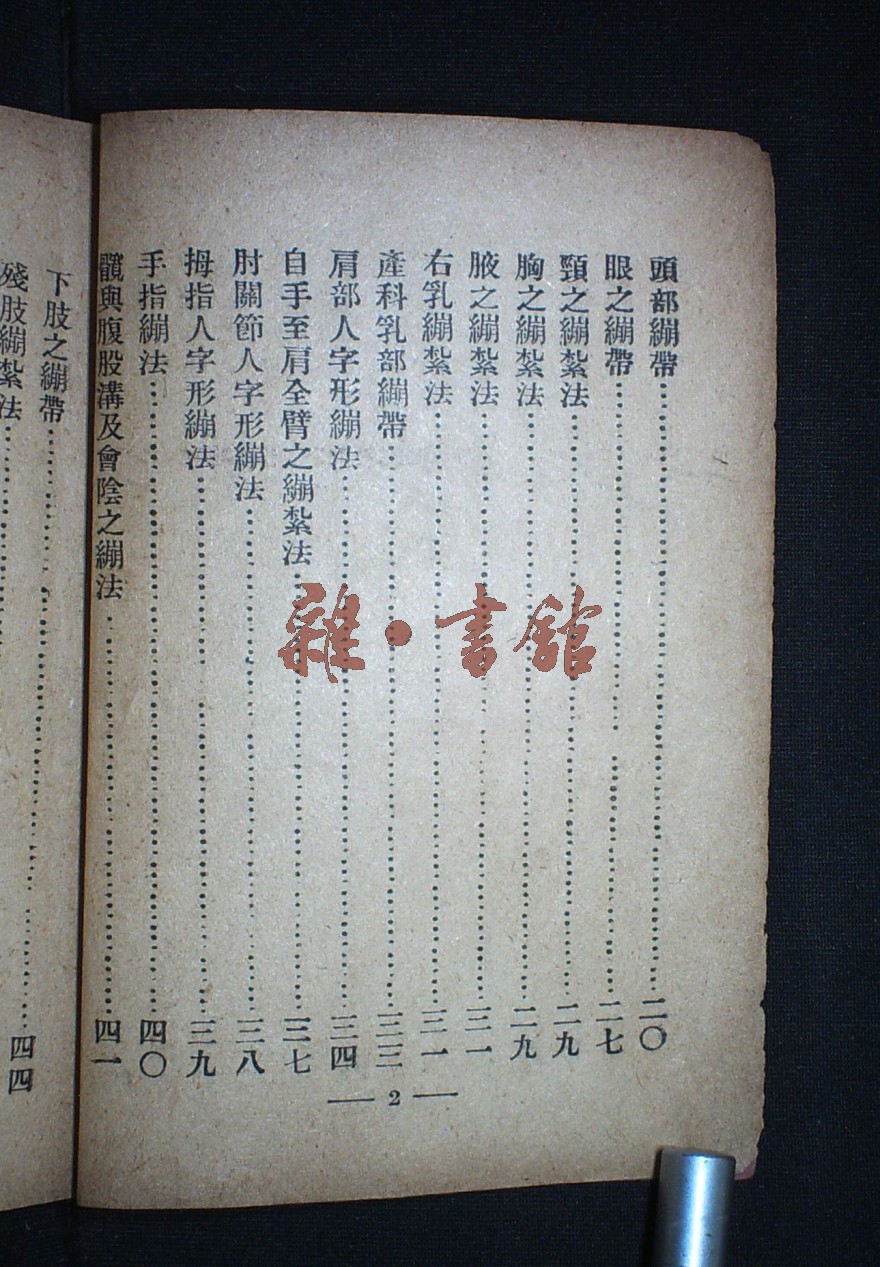 頭部繃帶……二〇
眼之繃帶……二七
頸之繃紮法……二九
胸之繃紮法……二九
腋之繃紮法……三一
右乳繃紮法……三一
產科乳部繃帶……三三
肩部人字形繃法……三四
自手至肩全臂之繃紮法……三七
肘關節人字形繃法……三八
拇指人字形繃法……三九
手指繃法……四〇
髖與腹股溝及會陰之繃法……四一
— 2 —
下肢之繃帶……四四
殘肢繃紮法……
雜·書館